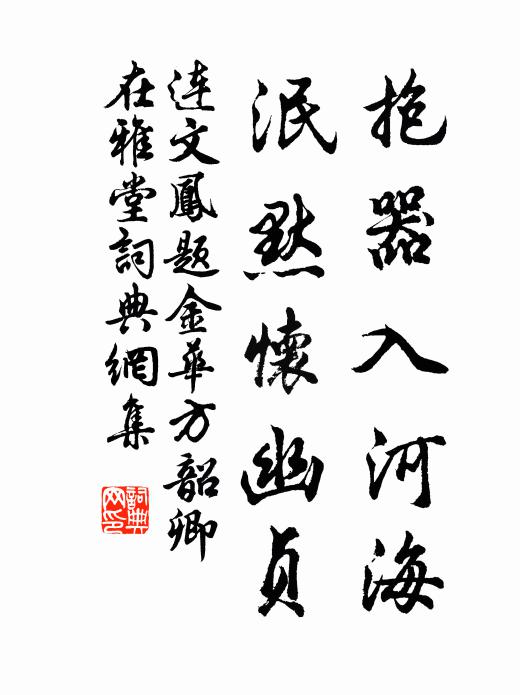 抱器入河海
泯默懷幽貞
连文鳳题金華方韶卿
在雅堂詞典網集
詞典网印